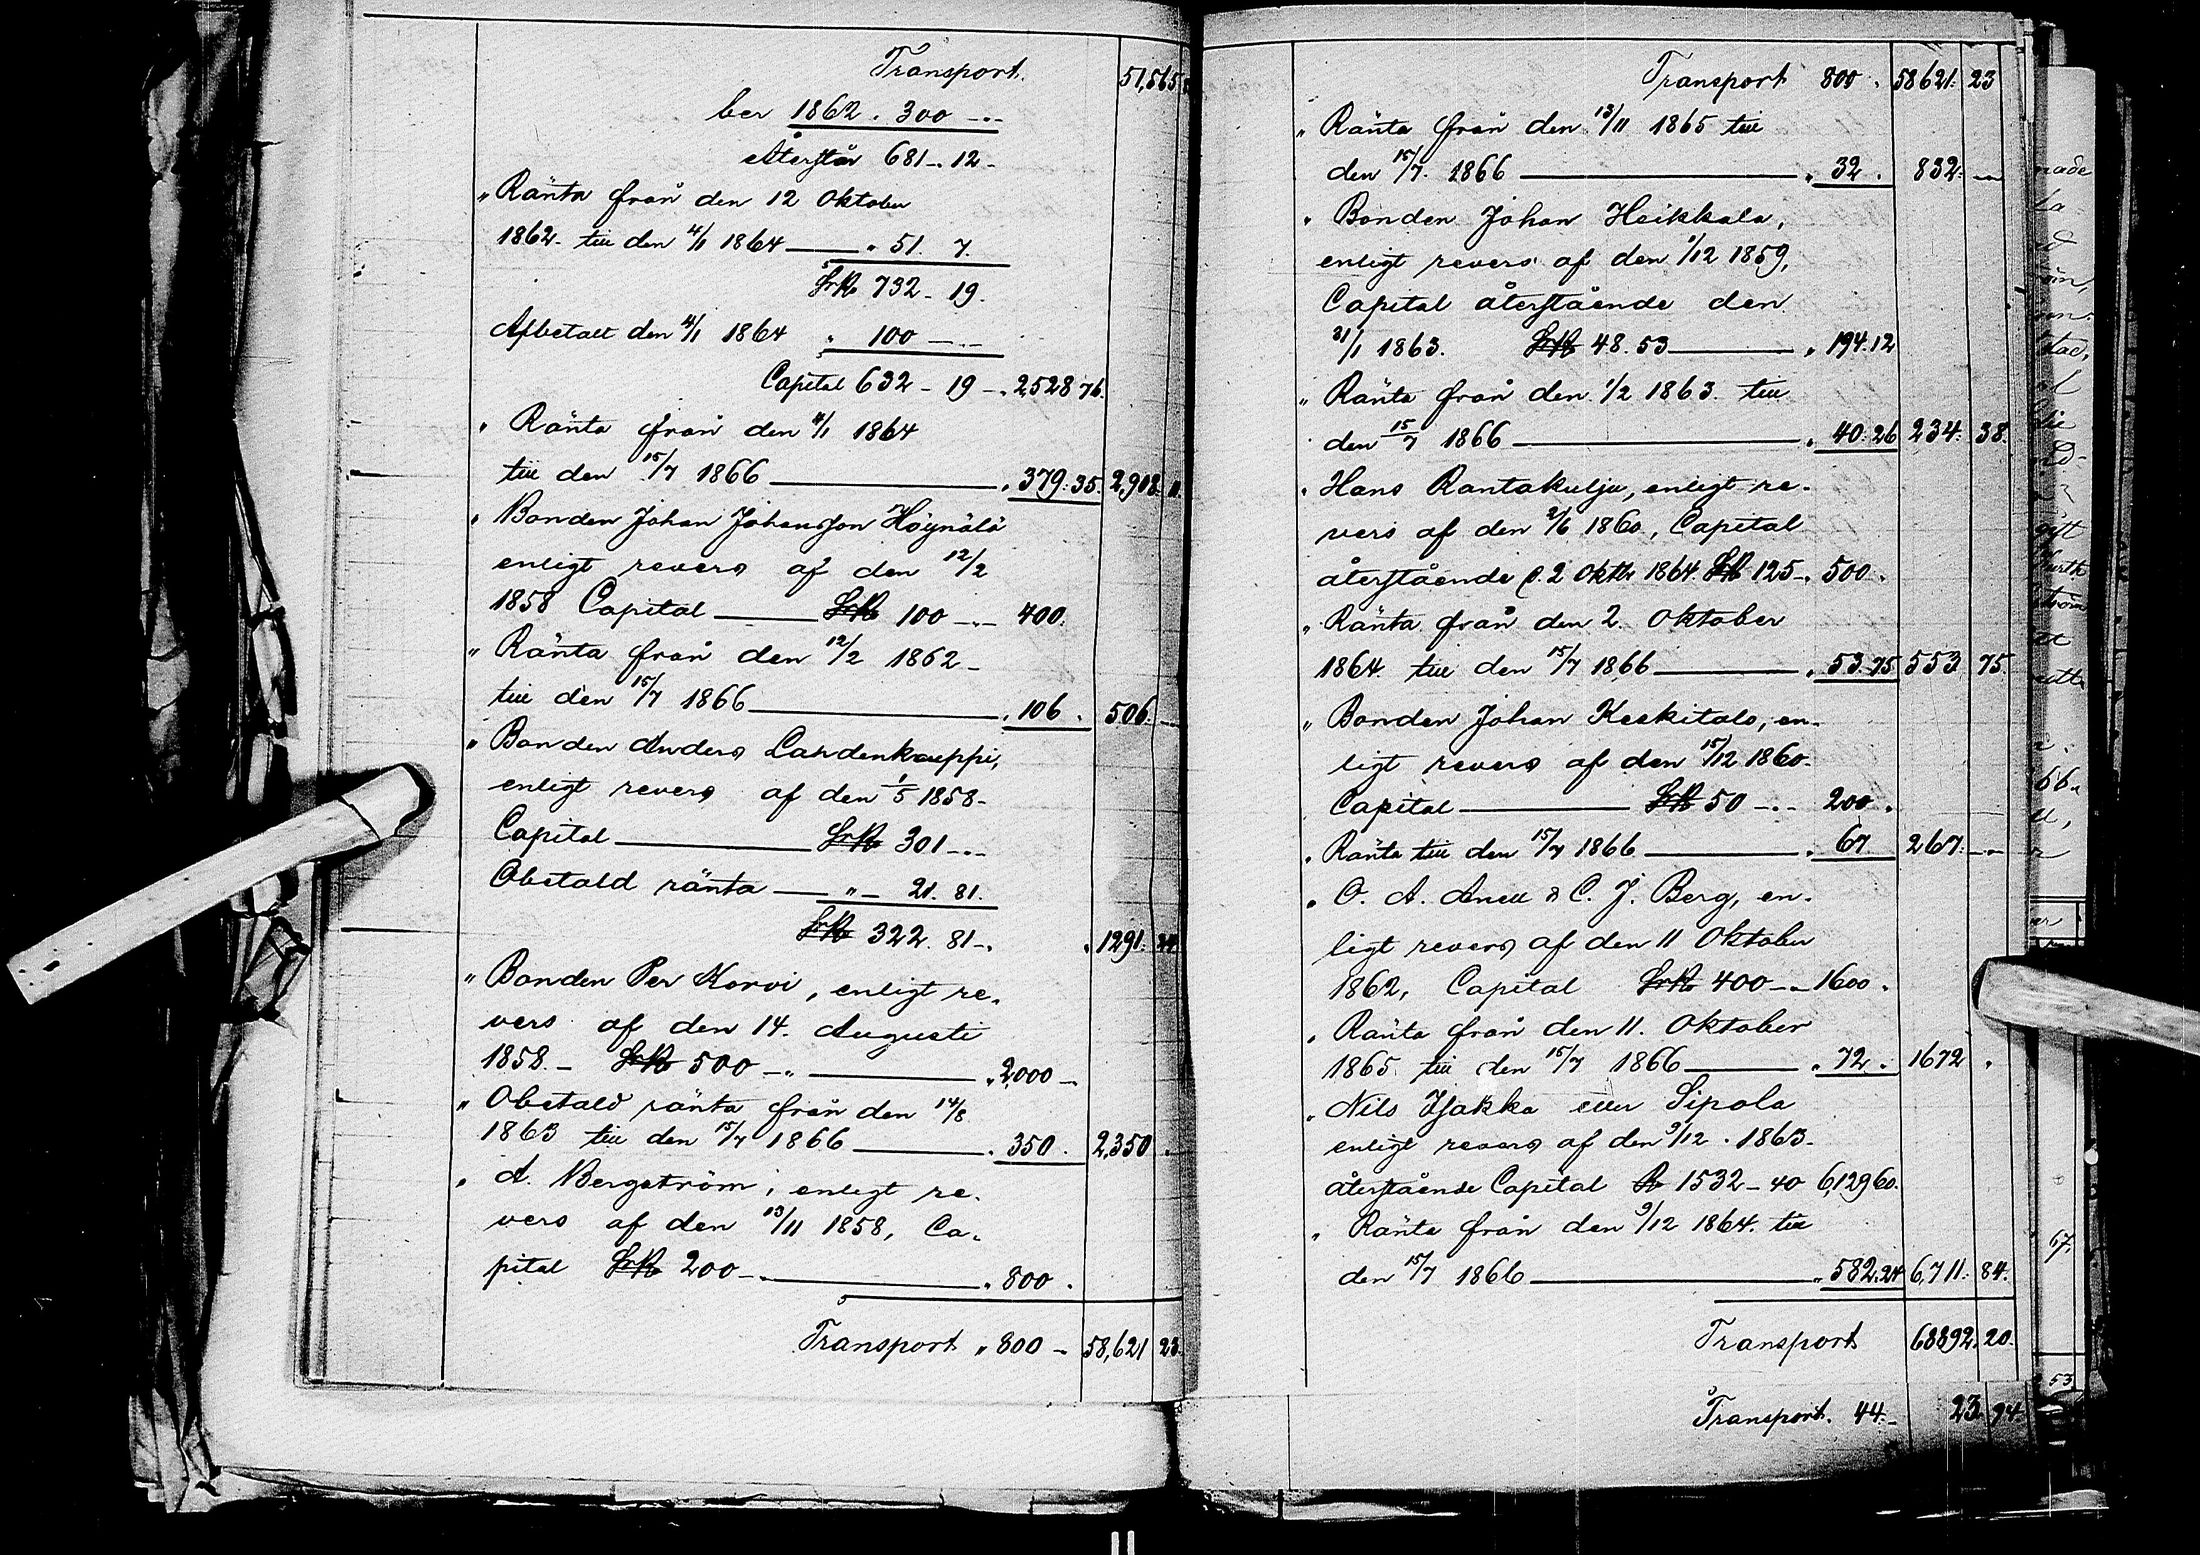 Transport. 51,565
ber 1862 . 300 -.-
Återstår 681 -. 12 -
„ Ränta från den 12 Oktober
1862 - till den 4/1 1864 — „ 51. 7.
SrRb 732 - 19.
Afbetalt den 4/1 1864 „ 100 -.-
Capital 632 - 19 - „ 2528 76.
„ Ränta från den 4/1 1864
till den 15/7 1866 — „ 379. 35. 2,908. 11.
„ Bonden Johan Johansson Höynälä
enligt revers af den 12/2
1858 Capital — SrRb 100 -.- 400.
„ Ränta från den 12/2 1862 -
till den 15/7 1866 — „ 106 . 506. -
„ Bonden Anders Lahdenkauppi,
enligt revers af den 1/5 1858 -
Capital — SrRb 301 -.-
Obetald ränta — „ - 21. 81.
SrRb 322. 81 -. „ 1291. 24.
„ Bonden Per Korvi, enligt re-
vers af den 14. Augusti
1858. - SrRb 500 -. — „ 2,000 -
„ Obetald ränta från den 14/8
1863 till den 15/7 1866 — „ 350 . 2,350 .
„ A. Bergström, enligt re-
vers af den 13/11 1858, Ca-
pital SrRb 200 -. — „ 800 .
Transport „ 800 - 58,621 23.
Transport 800 . 58621. 23
„ Ränta från den 13/11 1865 till
den 15/7. 1866 — „ 32 . 832. -
„ Bonden Johan Heikkala,
enligt revers af den 1/12 1859,
Capital återstående den
31/1 1863. SrRb 48. 53 — „ 194. 12
„ Ränta från den 1/2 1863. till
den 15/7 1866 — „ 40. 26 234. 38.
„ Hans Rantakulju, enligt re-
vers af den 2/6 1860, Capital
återstående d. 2 Oktbr 1864. SRb 125 -. 500 .
„ Ränta från den 2. Oktober
1864. till den 15/7 1866 — „ 53. 75 553 75.
„ Bonden Johan Keskitalo, en-
ligt revers af den 15/12 1860 -
Capital — SrRb 50 -.- 200 .
„ Ränta till den 15/7 1866 — „ 67 267. -
„ O. A. Anell & C. J. Berg, en-
ligt revers af den 11 Oktober
1862, Capital SrRb 400 -.- 1600 .
„ Ränta från den 11. Oktober
1865 till den 15/7 1866 — „ 72 . 1672 .
„ Nils Isakka eller Sipola
enligt revers af den 9/12 . 1863 -
återstående Capital Rb 1532 - 40 6,129 60.
„ Ränta från den 9/12 1864. till
den 15/7 1866 — „ 582. 24 6,711. 84.
Transport 68892. 20.
Transport. 44 - 23 94.